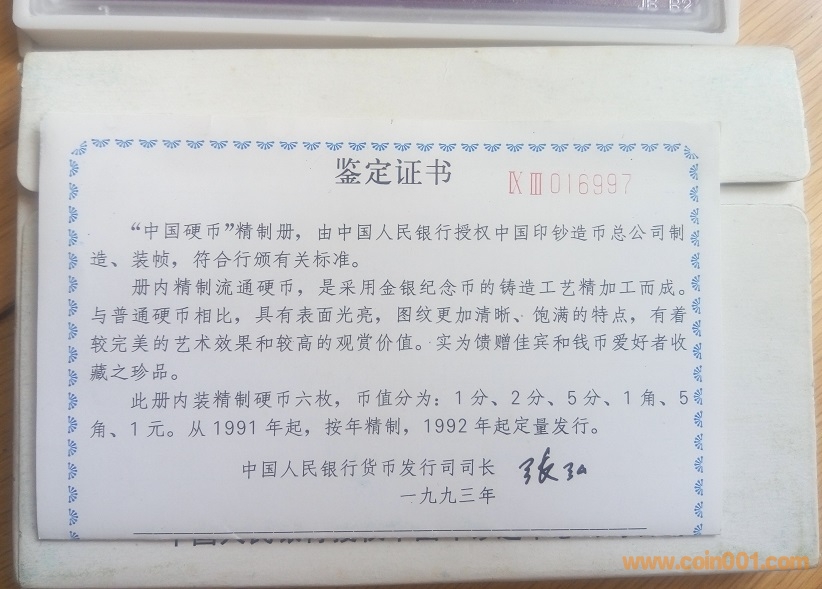 鉴定证书
Ⅸ Ⅲ 016997
“中国硬币”精制册，由中国人民银行授权中国印钞造币总公司制
造、装帧，符合行颁有关标准。
册内精制流通硬币，是采用金银纪念币的铸造工艺精加工而成。
与普通硬币相比，具有表面光亮，图纹更加清晰、饱满的特点，有着
较完美的艺术效果和较高的观赏价值。实为馈赠佳宾和钱币爱好者收
藏之珍品。
此册内装精制硬币六枚，币值分为：1分、2分、5分、1角、5
角、1元。从1991年起，按年精制，1992年起定量发行。
中国人民银行货币发行司司长 张弘
一九九三年
www.coin001.com